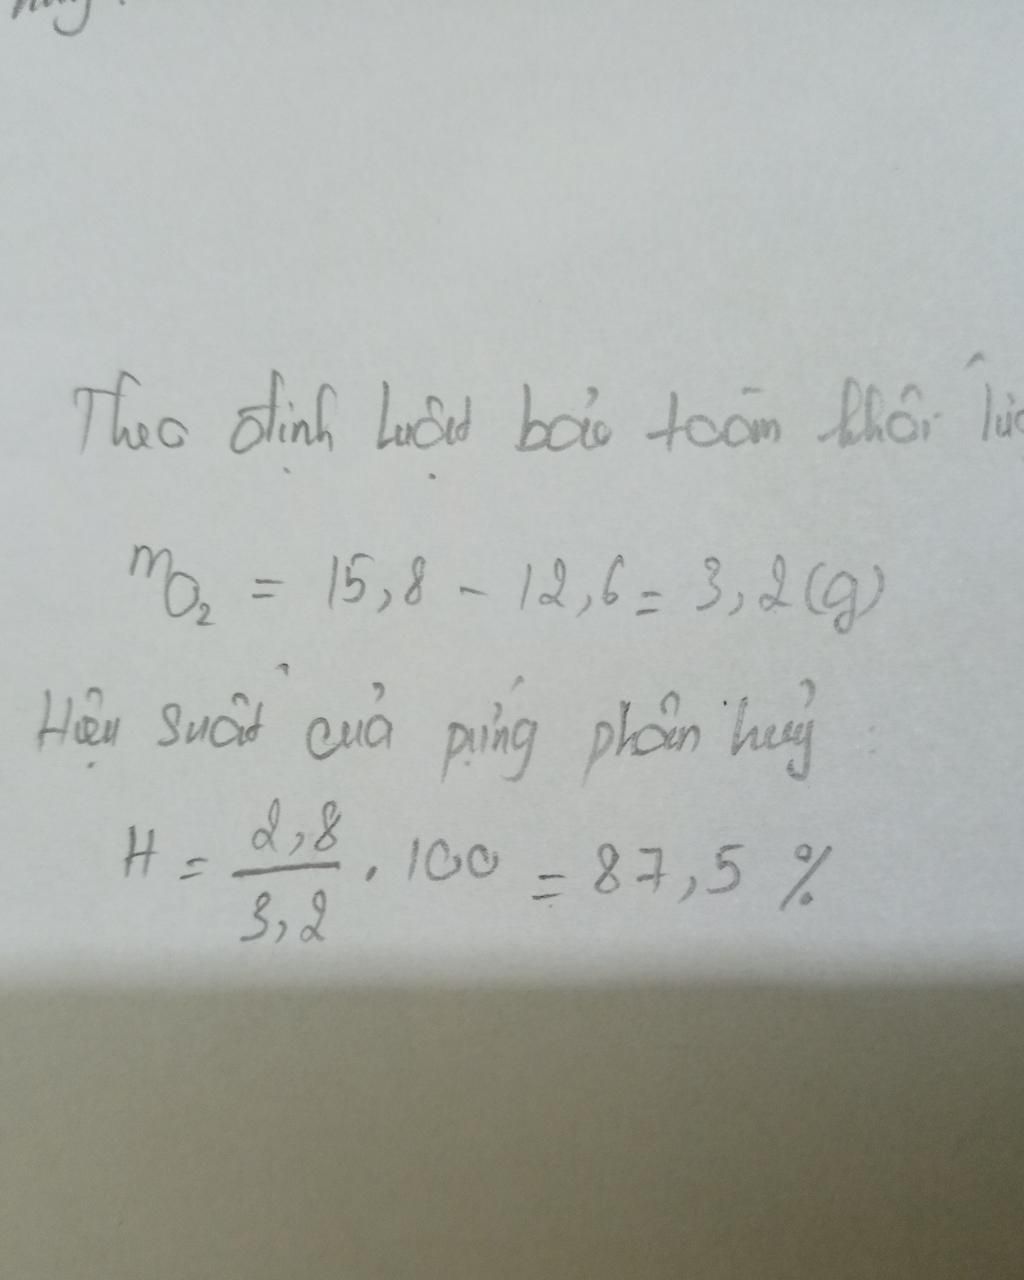 Theo định luật bảo toàn khối
mO₂ = 15,8 - 12,6 = 3,2 (g)
Hiệu suất của pứng phân huỷ :
H = 2,8/3,2 . 100 = 87,5 %